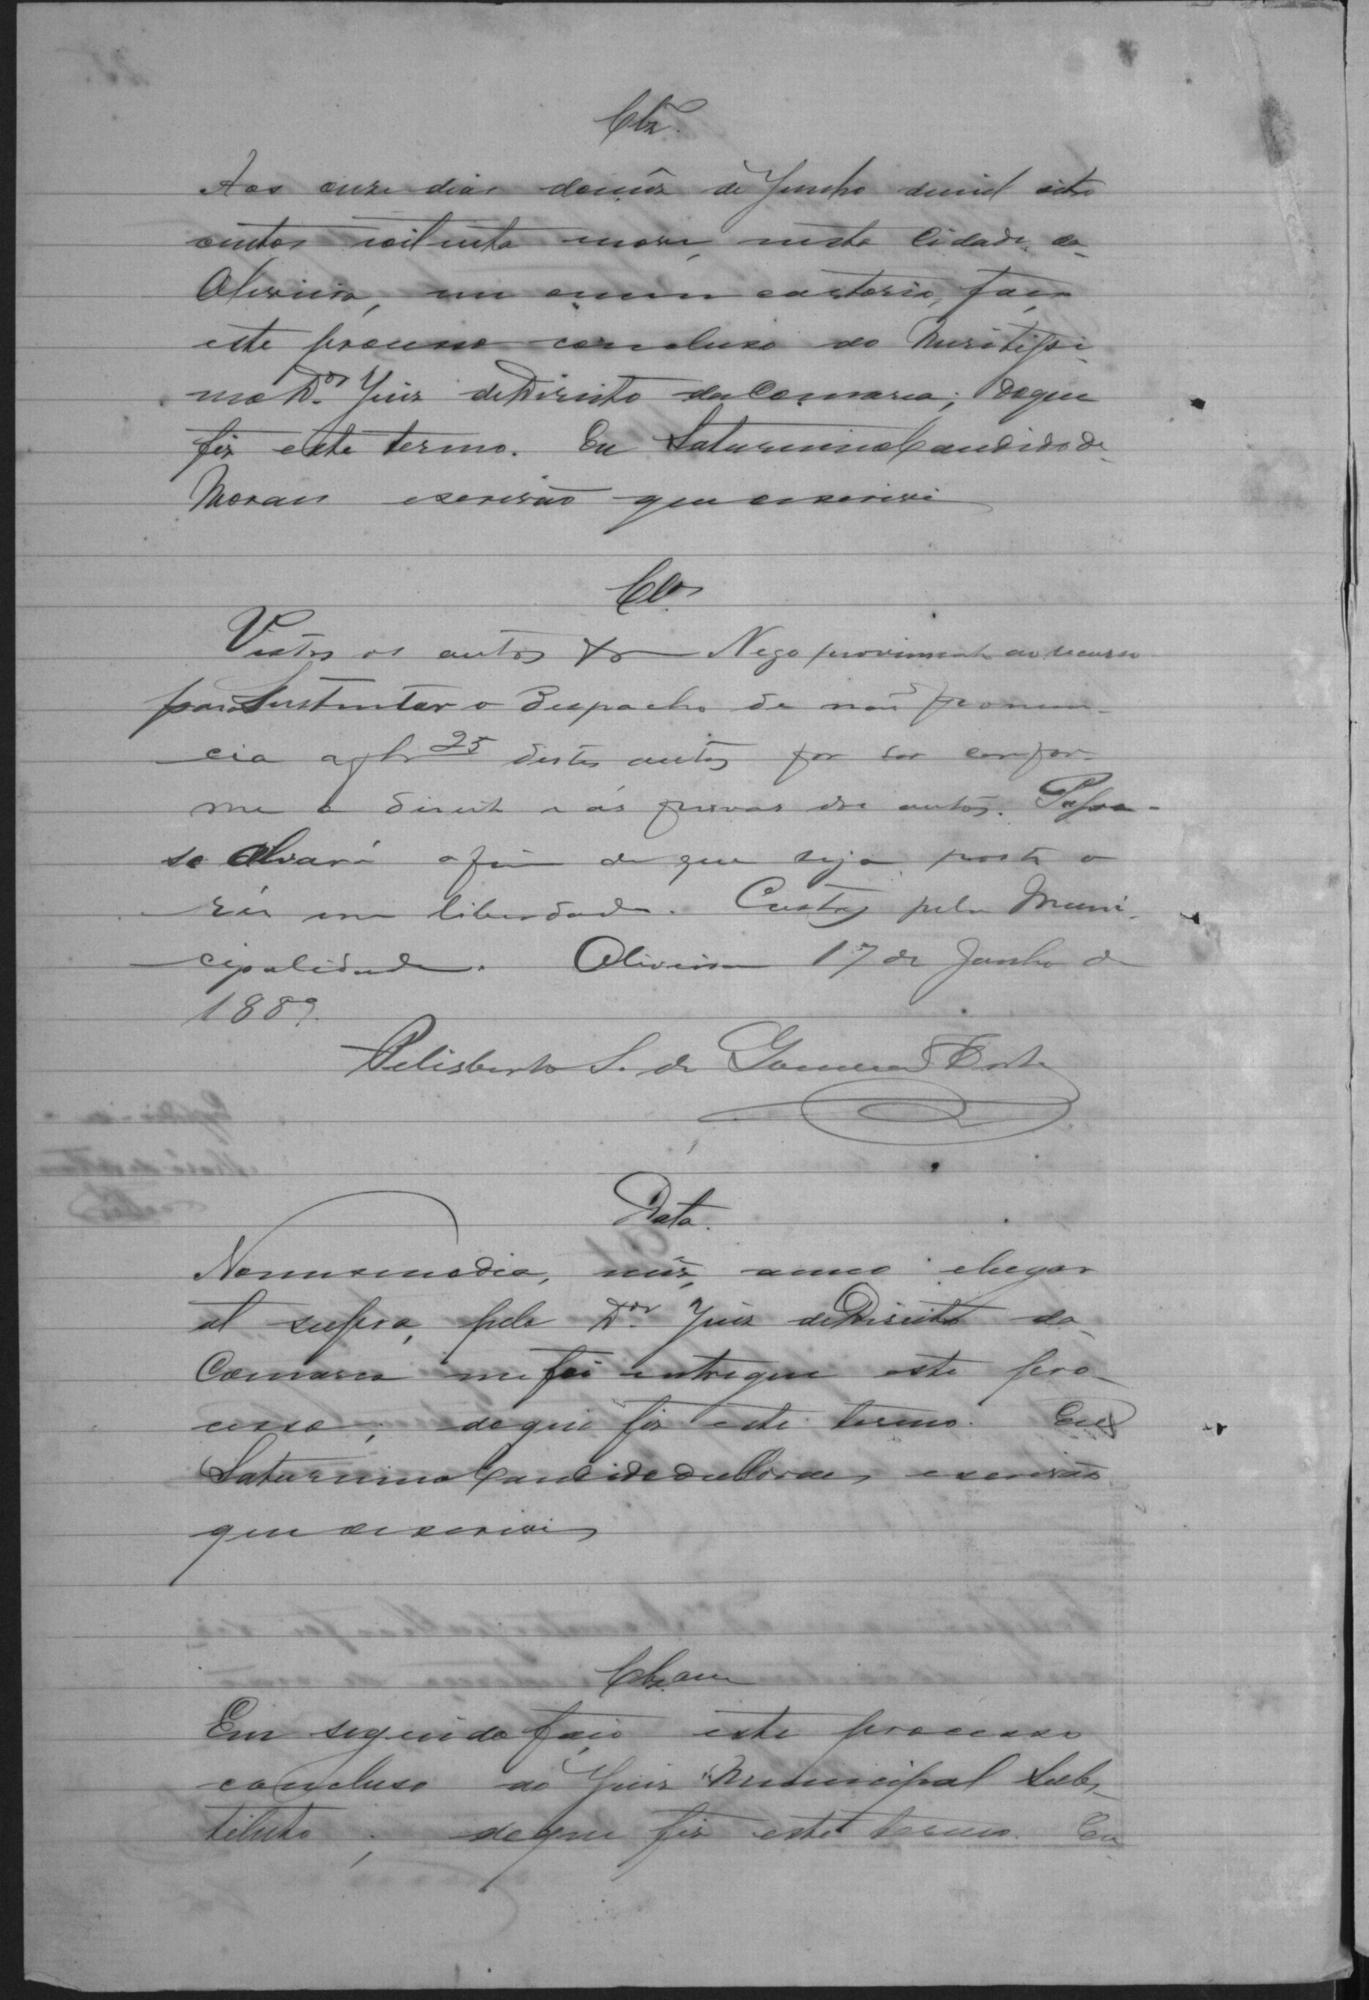 Clz.
Aos onze dias domês de Junho demil oito
centos i oitenta nove, nesta Cidade da
Oliveira, em o meu cartorio, faço
este processo concluso ao Meretissi-
mo Dor. Juiz deDireito daComarca; doque
fiz este termo. Eu SaturninoCandido de
Moraes escrivão que o escrivi
Clos
Vistos os autos &a Nego provimento ao recurso
para sustentar o despacho de não pronun-
cia a fls 25 destes autos por ser confor-
me o direito e ás provas dos autos. Passe-
se Alvará afim de que seja posto o
réu em liberdade. Custas pela Muni-
cipalidade. Oliveira 17 de Junho de
1889.
Felisberto S. de
Data.
Nomesmodia, mês, anno
supra, pelo Dor. Juiz deDireito da
Comarca me foi entregue este pro-
cesso; deque fiz este termo. Eu
Saturnino Candido deMoraes, escrivão
que o escrivi
Clzam
Em seguida faço este processo
concluso ao Juiz Municipal Subs-
tituto; deque fiz este termo. Eu